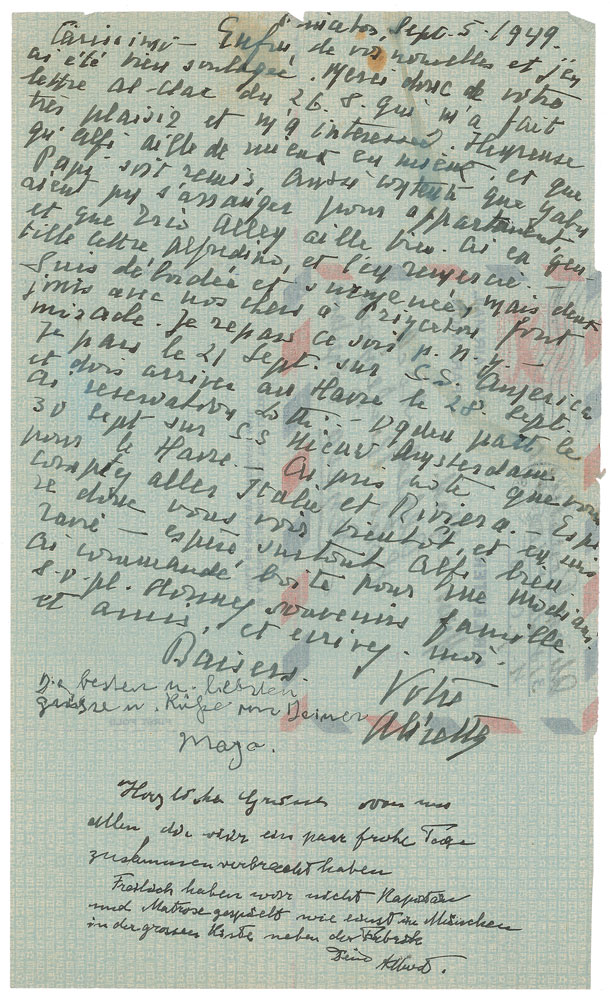 Princeton, Sept. 5. 1949.
Carissimo - Enfin de vos nouvelles et j'en
ai été bien soulagée. Merci donc de votre
lettre du 26. 8. qui m'a fait
très plaisir et m'a interessée. Heureuse
qu'Alfi aille de mieux en mieux, et que
Papi soit remis. Aussi contente que
aient pu s'arranger pour appartement,
et que Eric Alley aille bien. Ai eu
lettre Alfredino, et l'en remercie. -
Suis débordée et mais deux
jours avec nos chers à Princeton font
miracle. Je repars ce soir p. N.Y. -
Je pars le 21 Sept. sur S.S. America
et dois arriver au Havre le 28 Sept.
Ai reservation part le
30 Sept sur S.S Nieuw Amsterdam
pour le Havre. - Ai pris note que vous
comptez aller Italie et Riviera. - Espe-
re donc vous voir bientôt, et en suis
ravie - espère surtout Alfi bien.
Ai commandé boîte pour
s.v.pl. Donnez souvenirs famille
et amis, et ecrivez-moi.
Baisers.
Votre
Die besten u. liebsten
Grüsse u. Küsse von Deiner
Maja.
Herzlichen Grüsse von uns
allen, die wir ein paar frohe Tage
zusammen verbracht haben
Freilich haben wir nicht Kapitän
und Matrose gespielt wie einst in München
in der grossen Kiste neben der Fabrik
Dein Albert.